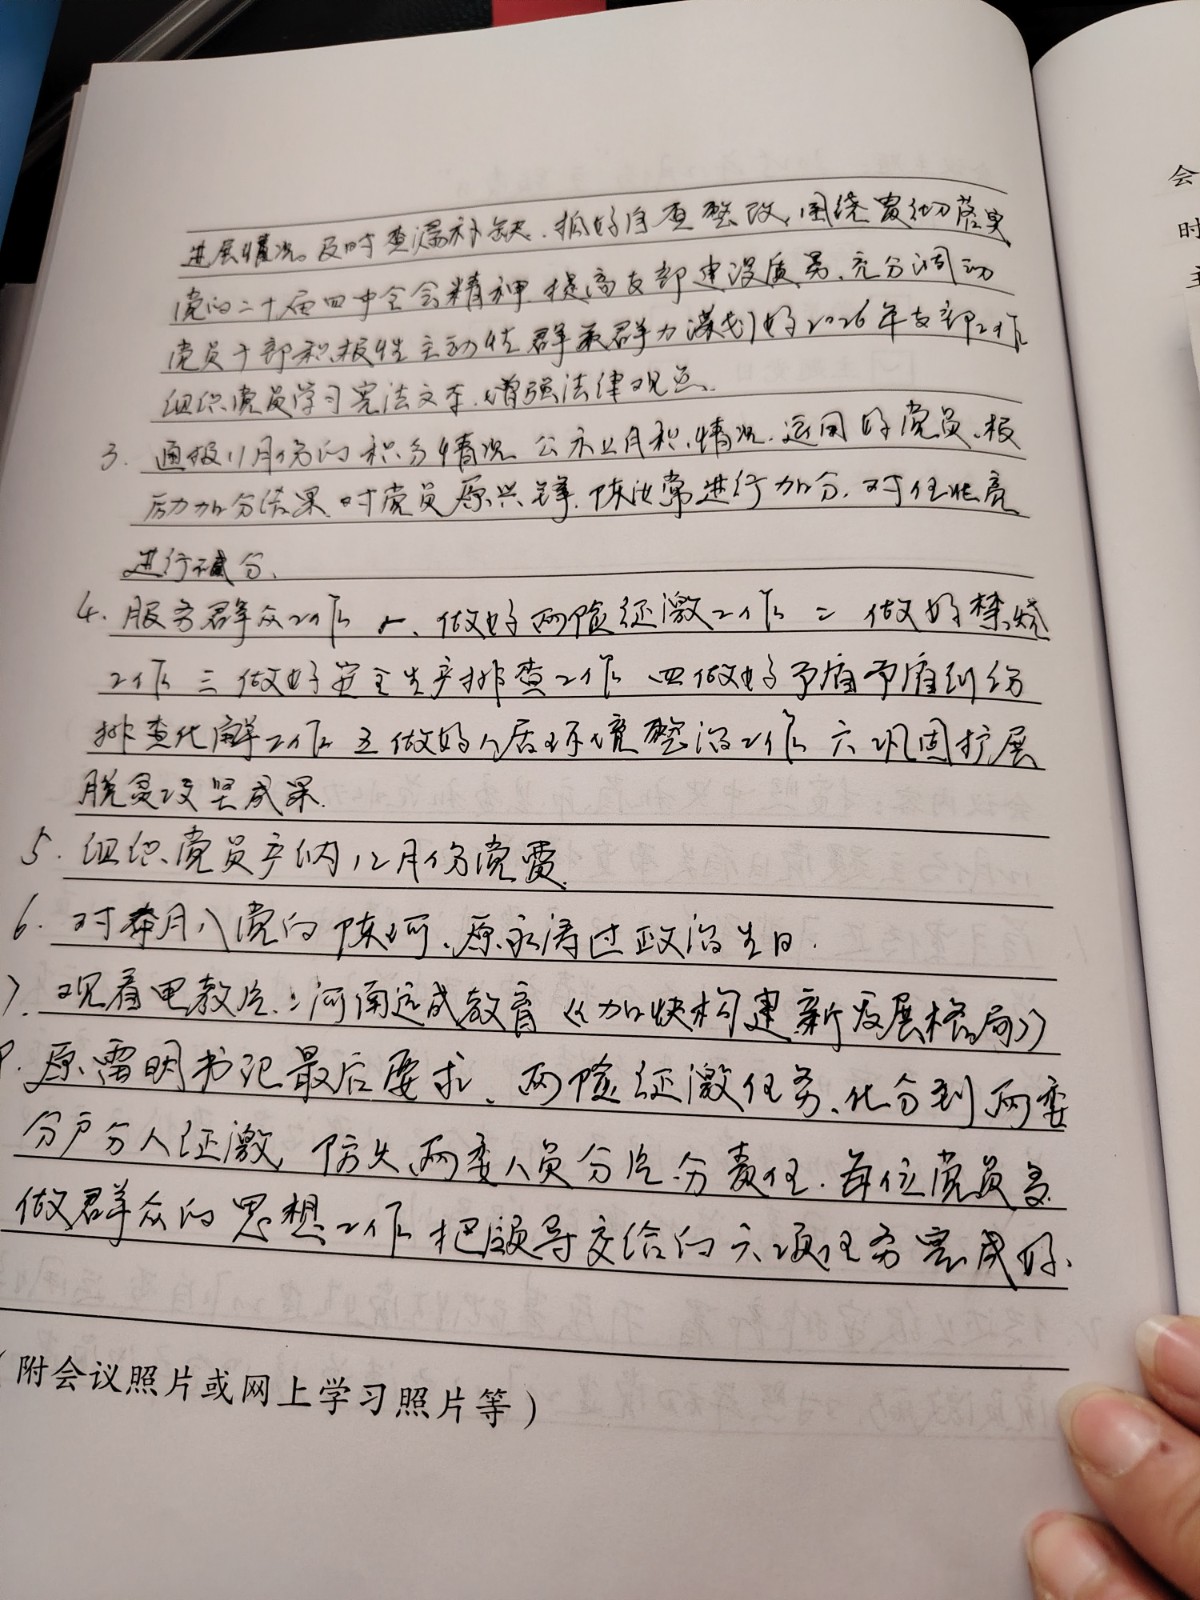 进展情况。及时查漏补缺、抓好自查整改,围绕贯彻落实
党的二十届四中全会精神,提高支部建设质量,充分调动
党员干部积极性主动性群策群力谋划好2026年支部工作
组织党员学习宪法文本,增强法律观点。
3. 通报11月份的积分情况 公示上月积情况,运用好党员积
励加分结果,对党员原兴锋、陈汝常进行加分,对任
进行减分、
4. 服务群众工作 一、做好两险征激工作 二 做好禁烧
工作 三 做好安全生产排查工作 四 做好矛盾矛盾纠纷
排查化解工作 五 做好人居环境整治工作 六 巩固扩展
脱贫攻坚成果.
5. 组织党员交纳12月份党费
6. 对本月入党的陈珂、原永涛过政治生日.
7. 观看电教片:河南远成教育《加快构建新发展格局》
8. 原雷明书记最后要求、两险征激任务、化分到两委
分户分人征激, 防火、两委人员分片分责任、每位党员多
做群众的思想工作 把领导交给的六项任务完成好、
(附会议照片或网上学习照片等)
会
时
主